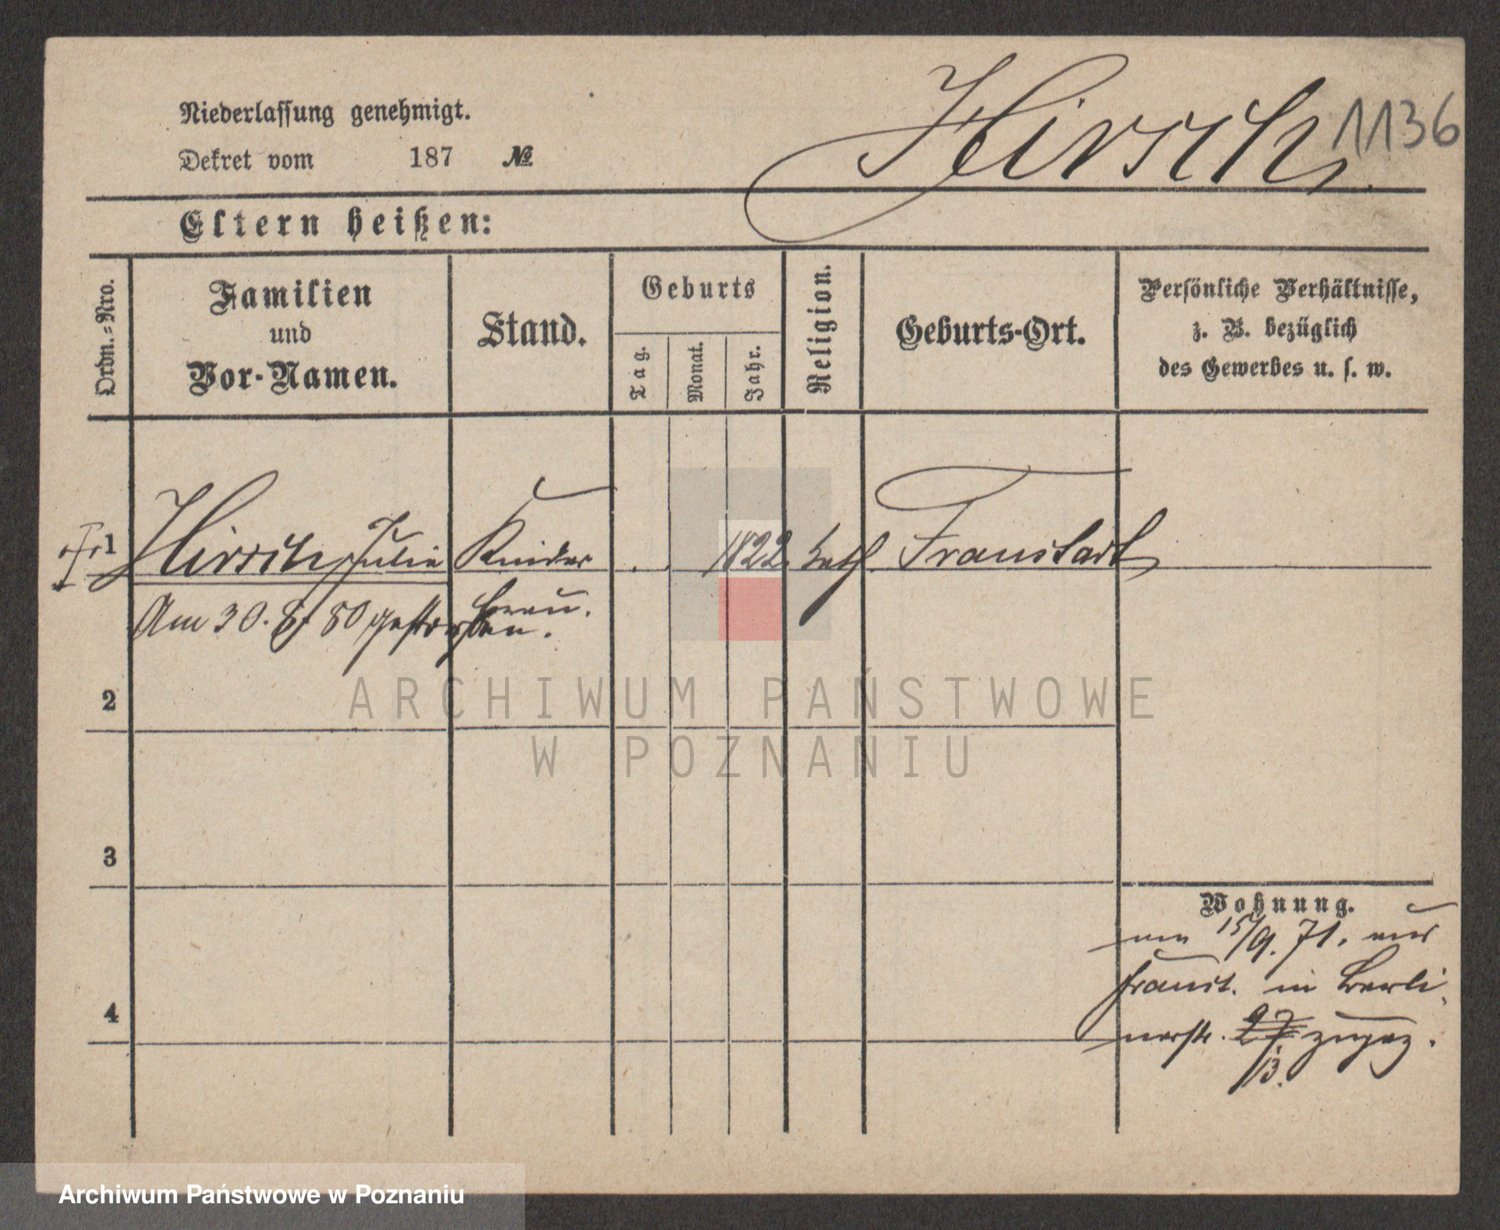 Hirsch 1136
Niederlassung genehmigt.
Dekret vom 187 №
Eltern heißen:
Ordn.-Nro.
Familien
und
Vor-Namen.
Stand.
Geburts
Tag.
Monat.
Jahr.
Religion.
Geburts-Ort.
Persönliche Verhältnisse,
z. B. bezüglich
des Gewerbes u. s. w.
1 Hirsch, Julie Kinder 1822 kath. Fraustadt
frau.
Am 30. 8. 80 gestorben.
2
3
4
Wohnung.
am 15/9. 71. aus
Fraust. in Berli-
nerstr. 27 zugez.
13.
ARCHIWUM PAŃSTWOWE
W POZNANIU
Archiwum Państwowe w Poznaniu